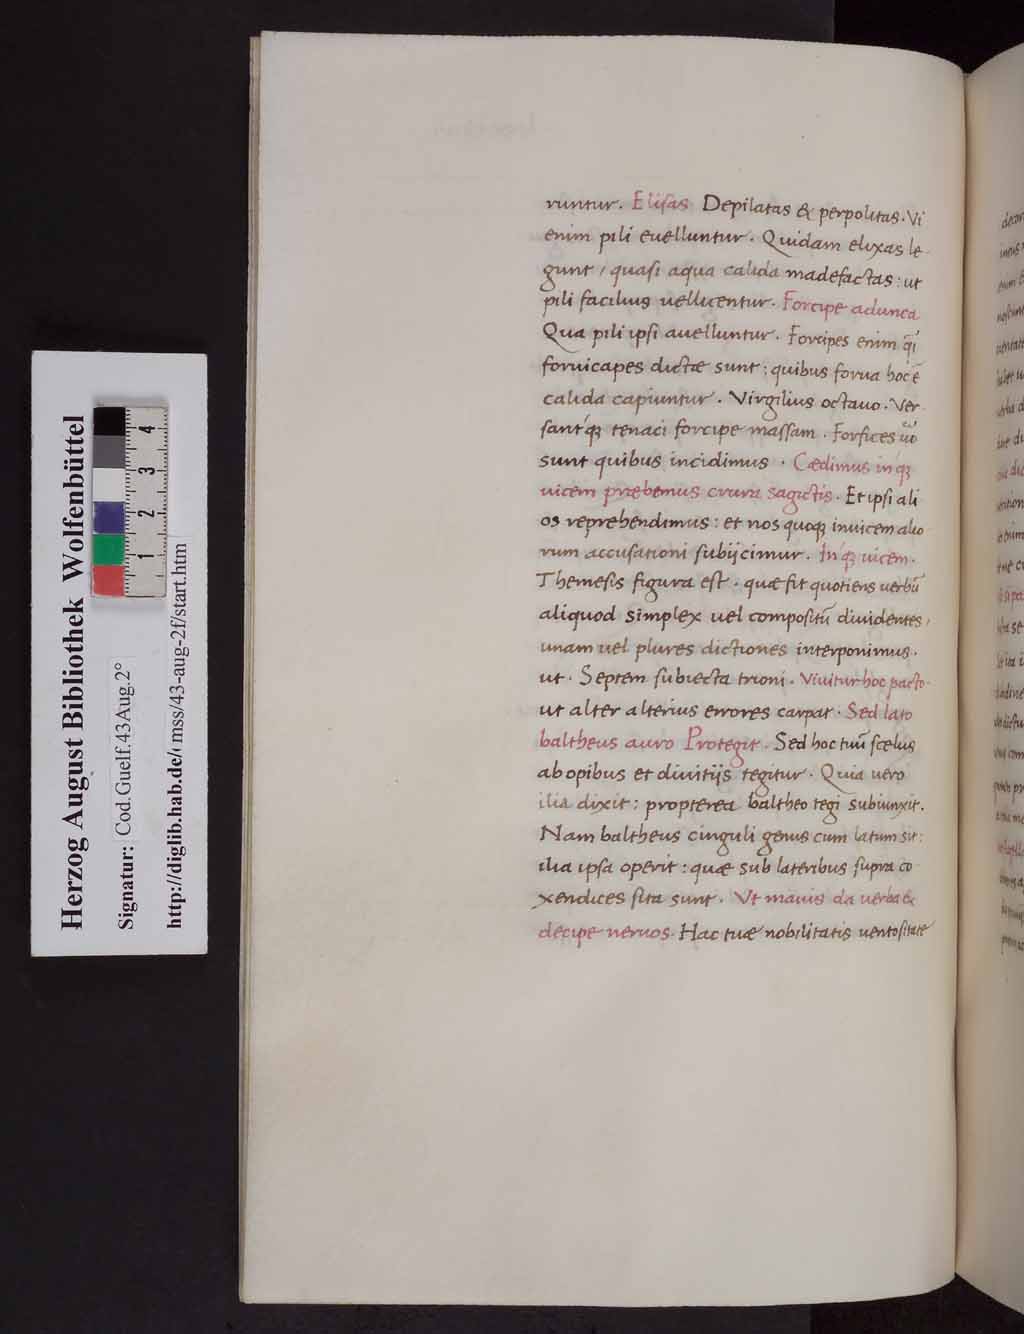 runtur. Elisas Depilatas & perpolitas. Vi
enim pili euelluntur. Quidam elixas le
gunt, quasi aqua calida madefactas: ut
pili facilius uellicentur. Forcipe adunca
Qua pili ipsi auelluntur. Forcipes enim q̃i
foruicapes dictæ sunt: quibus forua hoc ẽ
calida capiuntur. Virgilius octauo. Ver
santq̃ tenaci forcipe massam. Forfices uo
sunt quibus incidimus. Cædimus inq̃
uicem præbemus crura sagittis. Et ipsi ali
os reprehendimus: et nos quoq̃ inuicem alio
rum accusationi subijcimur. Inq̃ uicem.
Themesis figura est. quæ fit quotiens uerbũ
aliquod simplex uel compositũ diuidentes,
unam uel plures dictiones interponimus.
ut. Septem subiecta trioni. Viuitur hoc pacto.
ut alter alterius errores carpat. Sed lato
baltheus auro Protegit. Sed hoc tuũ scelus
ab opibus et diuitijs tegitur. Quia uero
ilia dixit: propterea baltheo tegi subiunxit.
Nam baltheus cinguli genus cum latum sit:
ilia ipsa operit: quæ sub lateribus supra co
xendices sita sunt. Vt mauis da uerba &
decipe neruos. Hac tuæ nobilitatis uentositate
Herzog August Bibliothek Wolfenbüttel
Signatur: Cod. Guelf. 43 Aug. 2°
http://diglib.hab.de/ mss/43-aug-2f/start.htm
1 2 3 4